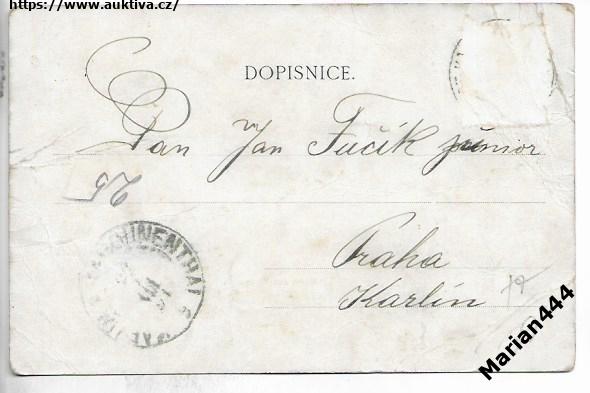 https://www.auktiva.cz/
DOPISNICE.
Pan Jan Fučík junior
Praha
Karlín
Marian444